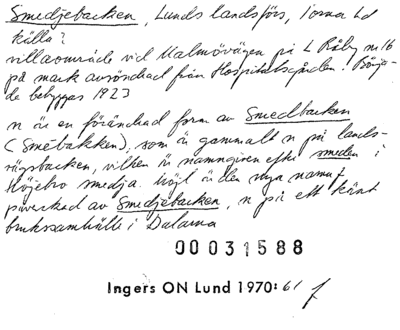 Smedjebacken, Lunds landsförs, i oma Ld
källa?
villaområde vid Malmövägen på L Råby nr 16
på mark avsöndrad från Hospitalsgården. Börja-
de bebyggas 1923
n är en förändrad form av Smedbacken
(Smebakken), som är gammalt n på lands-
vägsbacken, vilken är namngiven efter smeden i
Höjebro smedja. Möjl är den nya namnf
påverkad av Smedjebacken, n på ett känt
brukssamhälle i Dalarna
00031588
Ingers ON Lund 1970: 61